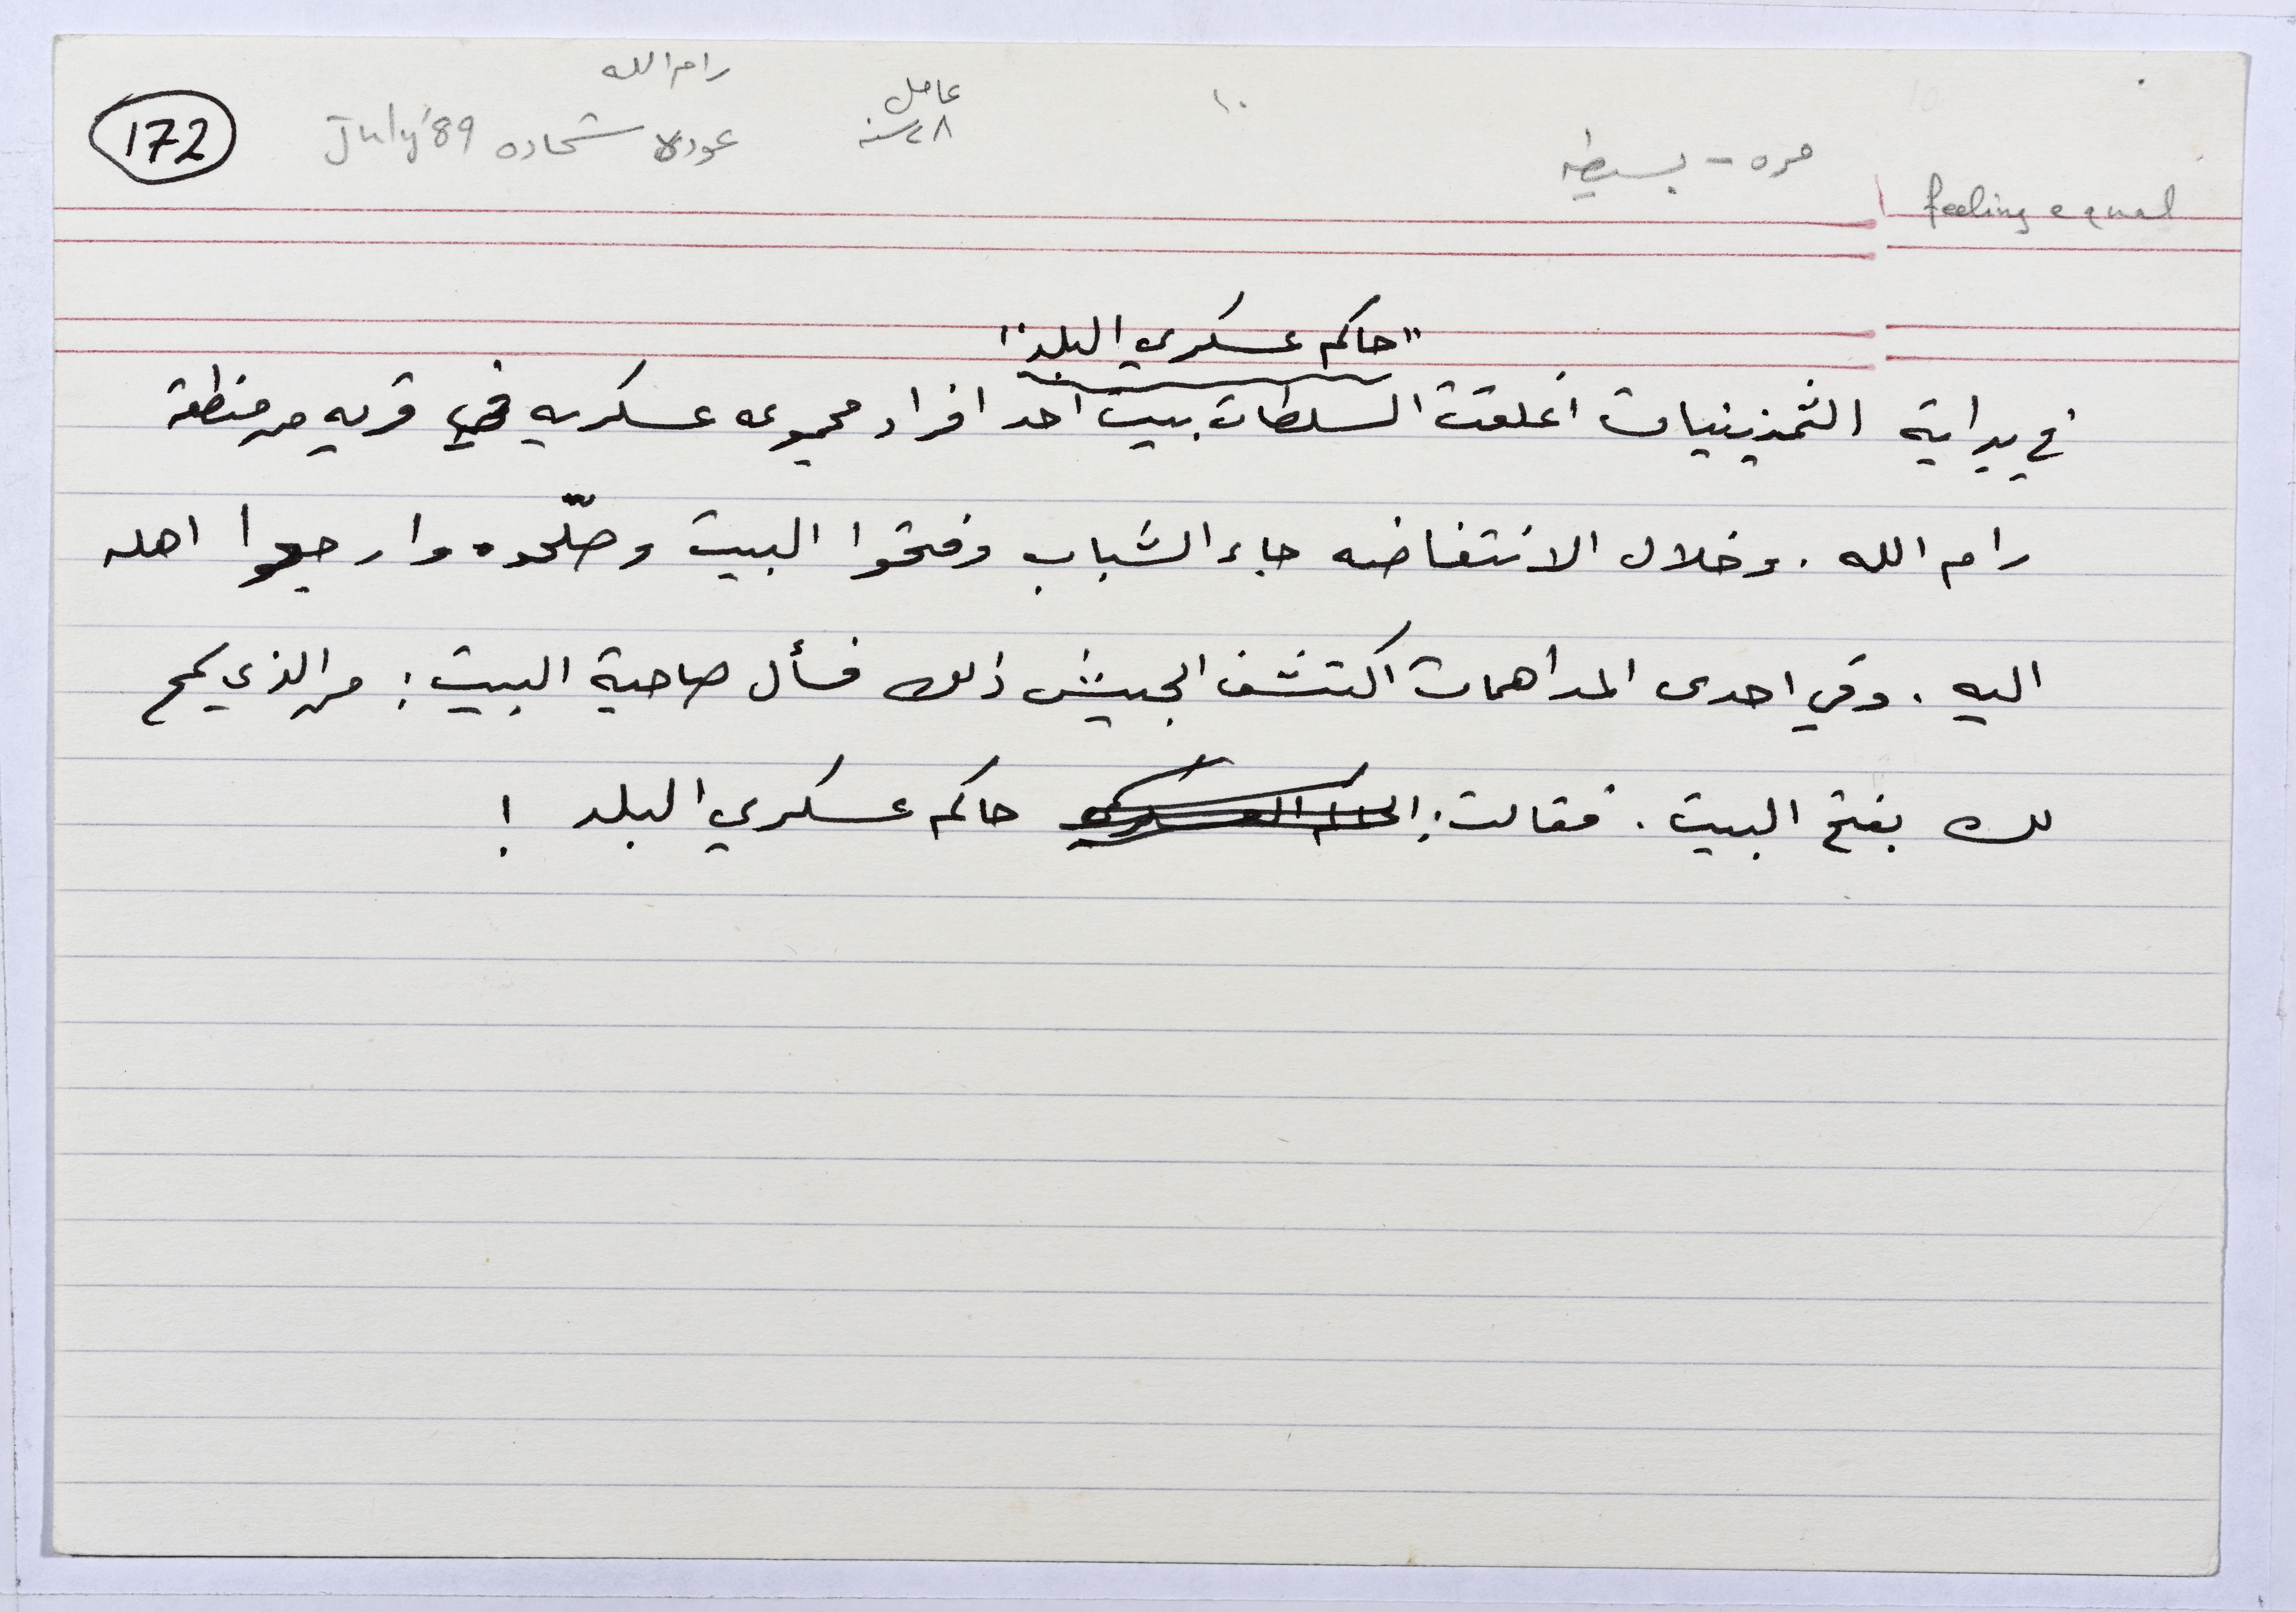 رام الله
عامل
١٠
172
July '89
عوده شحاده
٢٨ سنه
مره - بسيطه
feeling equal
"حاكم عسكري البلد"
في بداية الثمنينيات اغلقت السلطات بيت احد افراد مجموعه عسكريه في قريه من منطقة
رام الله . وخلال الانتفاضه جاء الشباب وفتحوا البيت وصلّحوه وارجعوا اهله
اليه . وفي احدى المداهمات اكتشف الجيش ذلك فسأل صاحبة البيت : من الذي سمح
لك بفتح البيت . فقالت : الحاكم العسكري حاكم عسكري البلد !